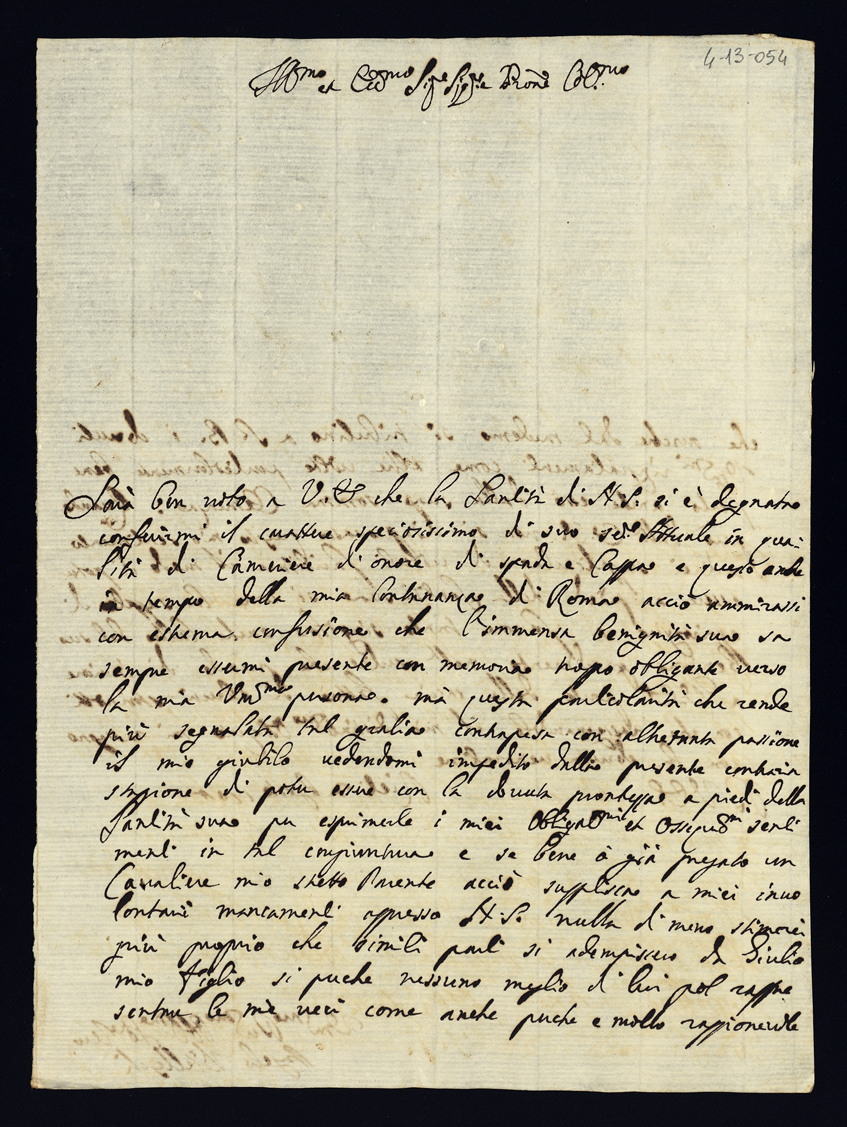 4-13-054
Ill.mo et Ecc.mo Sig.re Sig.re Pron.e Col.mo
Sarà ben noto a V. E. che la Santità di N. S. si è degnata
conferirmi il carattere speciosissimo di suo ser.e Attuale in qua-
lità di Cameriere di onore di spada e Cappa e questo anche
in tempo della mia lontananza di Roma acciò ammirassi
con estrema confusione che l'immensa benignità sua sa
sempre essermi presente con memoria troppo obligante verso
la mia Um.ma persona. mà questa particolarità che rende
più segnalata tal gratia contrapesa con altretanta passione
il mio giubilo vedendomi impedito dalla presente contraria
stagione di poter essere con la dovuta prontezza a piedi della
Santità sua per esprimerle i miei Obligat.mi et Ossequ.mi senti
menti in tal congiuntura e se bene ò già pregato un
Cavaliere mio stretto Parente acciò supplisca a miei invo
lontarii mancamenti appresso N. S. nulla di meno stimerei
più proprio che simili parti si adempissero da Giulio
mio figlio si perche nessuno meglio di lui pol rappre
sentare le mie veci come anche perche e molto raggionevole